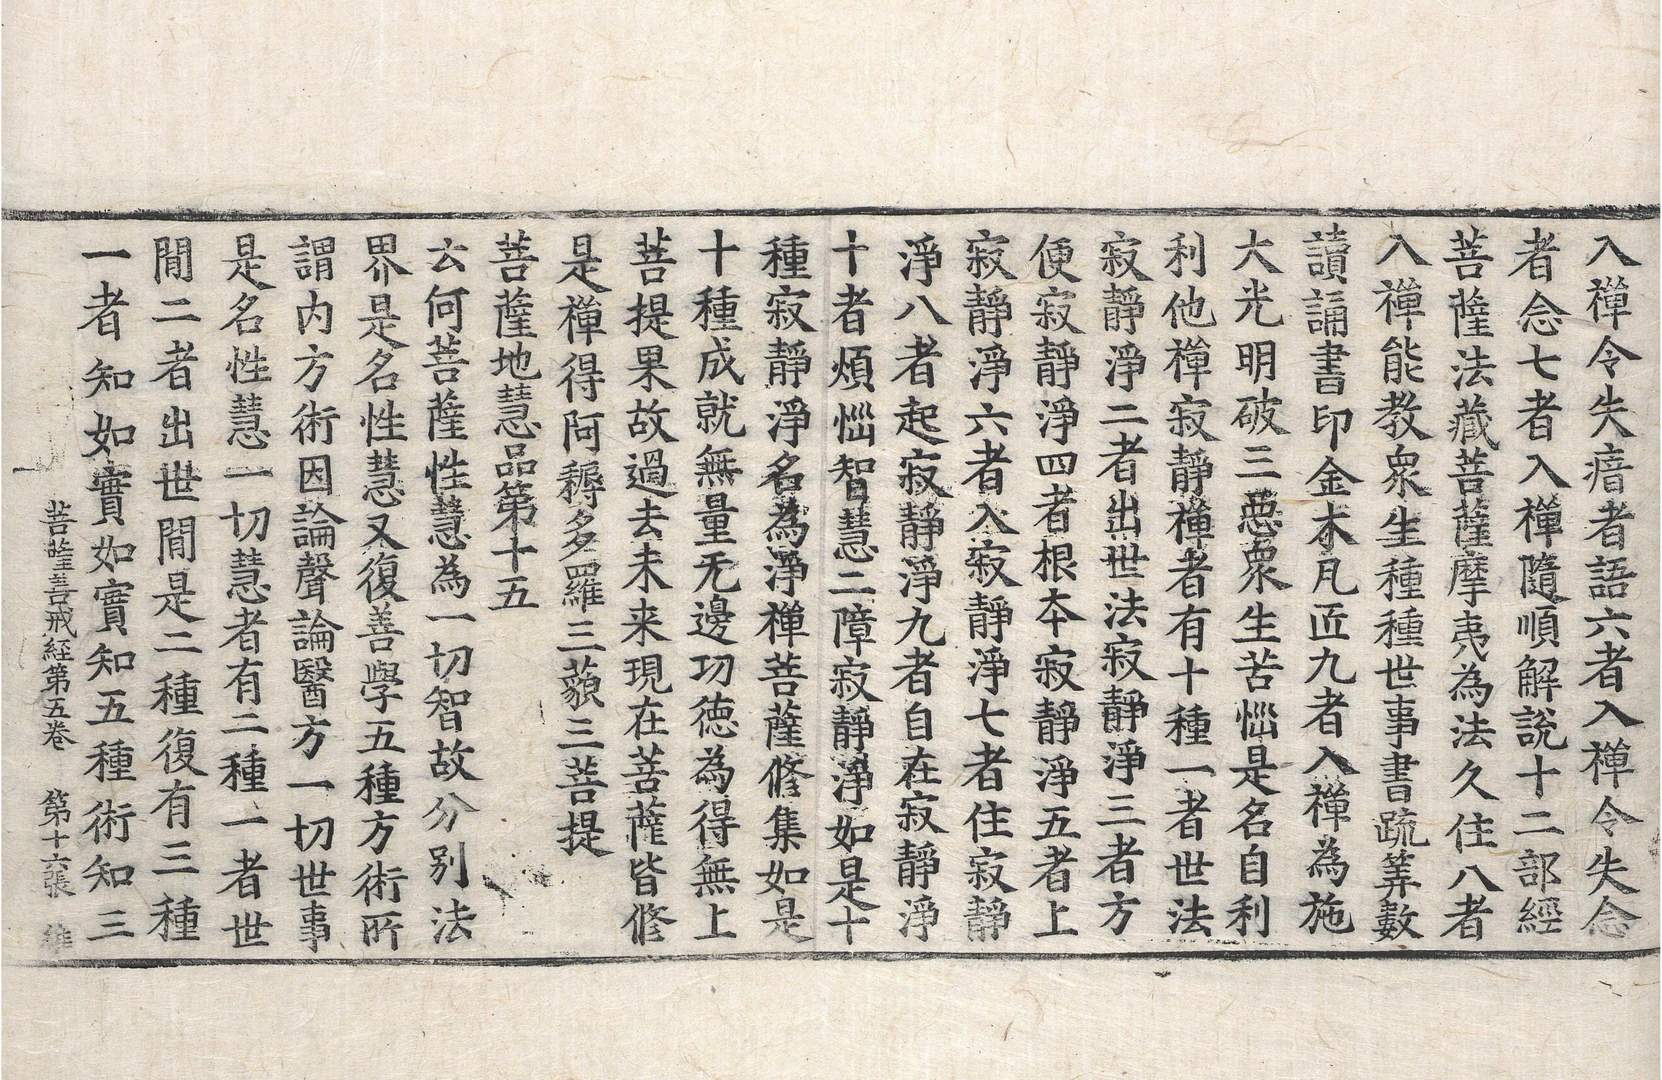 入禪令失瘖者語六者入禪令失念
者念七者入禪隨順解說十二部經
菩薩法藏菩薩摩夷為法久住八者
入禪能教衆生種種世事書䟽筭數
讀誦書印金木凡匠九者入禪為施
大光明破三惡衆生苦惱是名自利
利他禪寂靜禪者有十種一者世法
寂靜淨二者出世法寂靜淨三者方
便寂靜淨四者根本寂靜淨五者上
寂靜淨六者入寂靜淨七者住寂靜
淨八者起寂靜淨九者自在寂靜淨
十者煩惱智慧二障寂靜淨如是十
種寂靜淨名為淨禪菩薩修集如是
十種成就無量无邊功德為得無上
菩提果故過去未来現在菩薩皆修
是禪得阿耨多羅三藐三菩提
菩薩地慧品第十五
云何菩薩性慧為一切智故分別法
界是名性慧又復善學五種方術所
謂内方術因論聲論醫方一切世事
是名性慧一切慧者有二種一者世
間二者出世間是二種復有三種
一者知如實如實知五種術知三
菩薩善戒經第五卷　第十六張　維